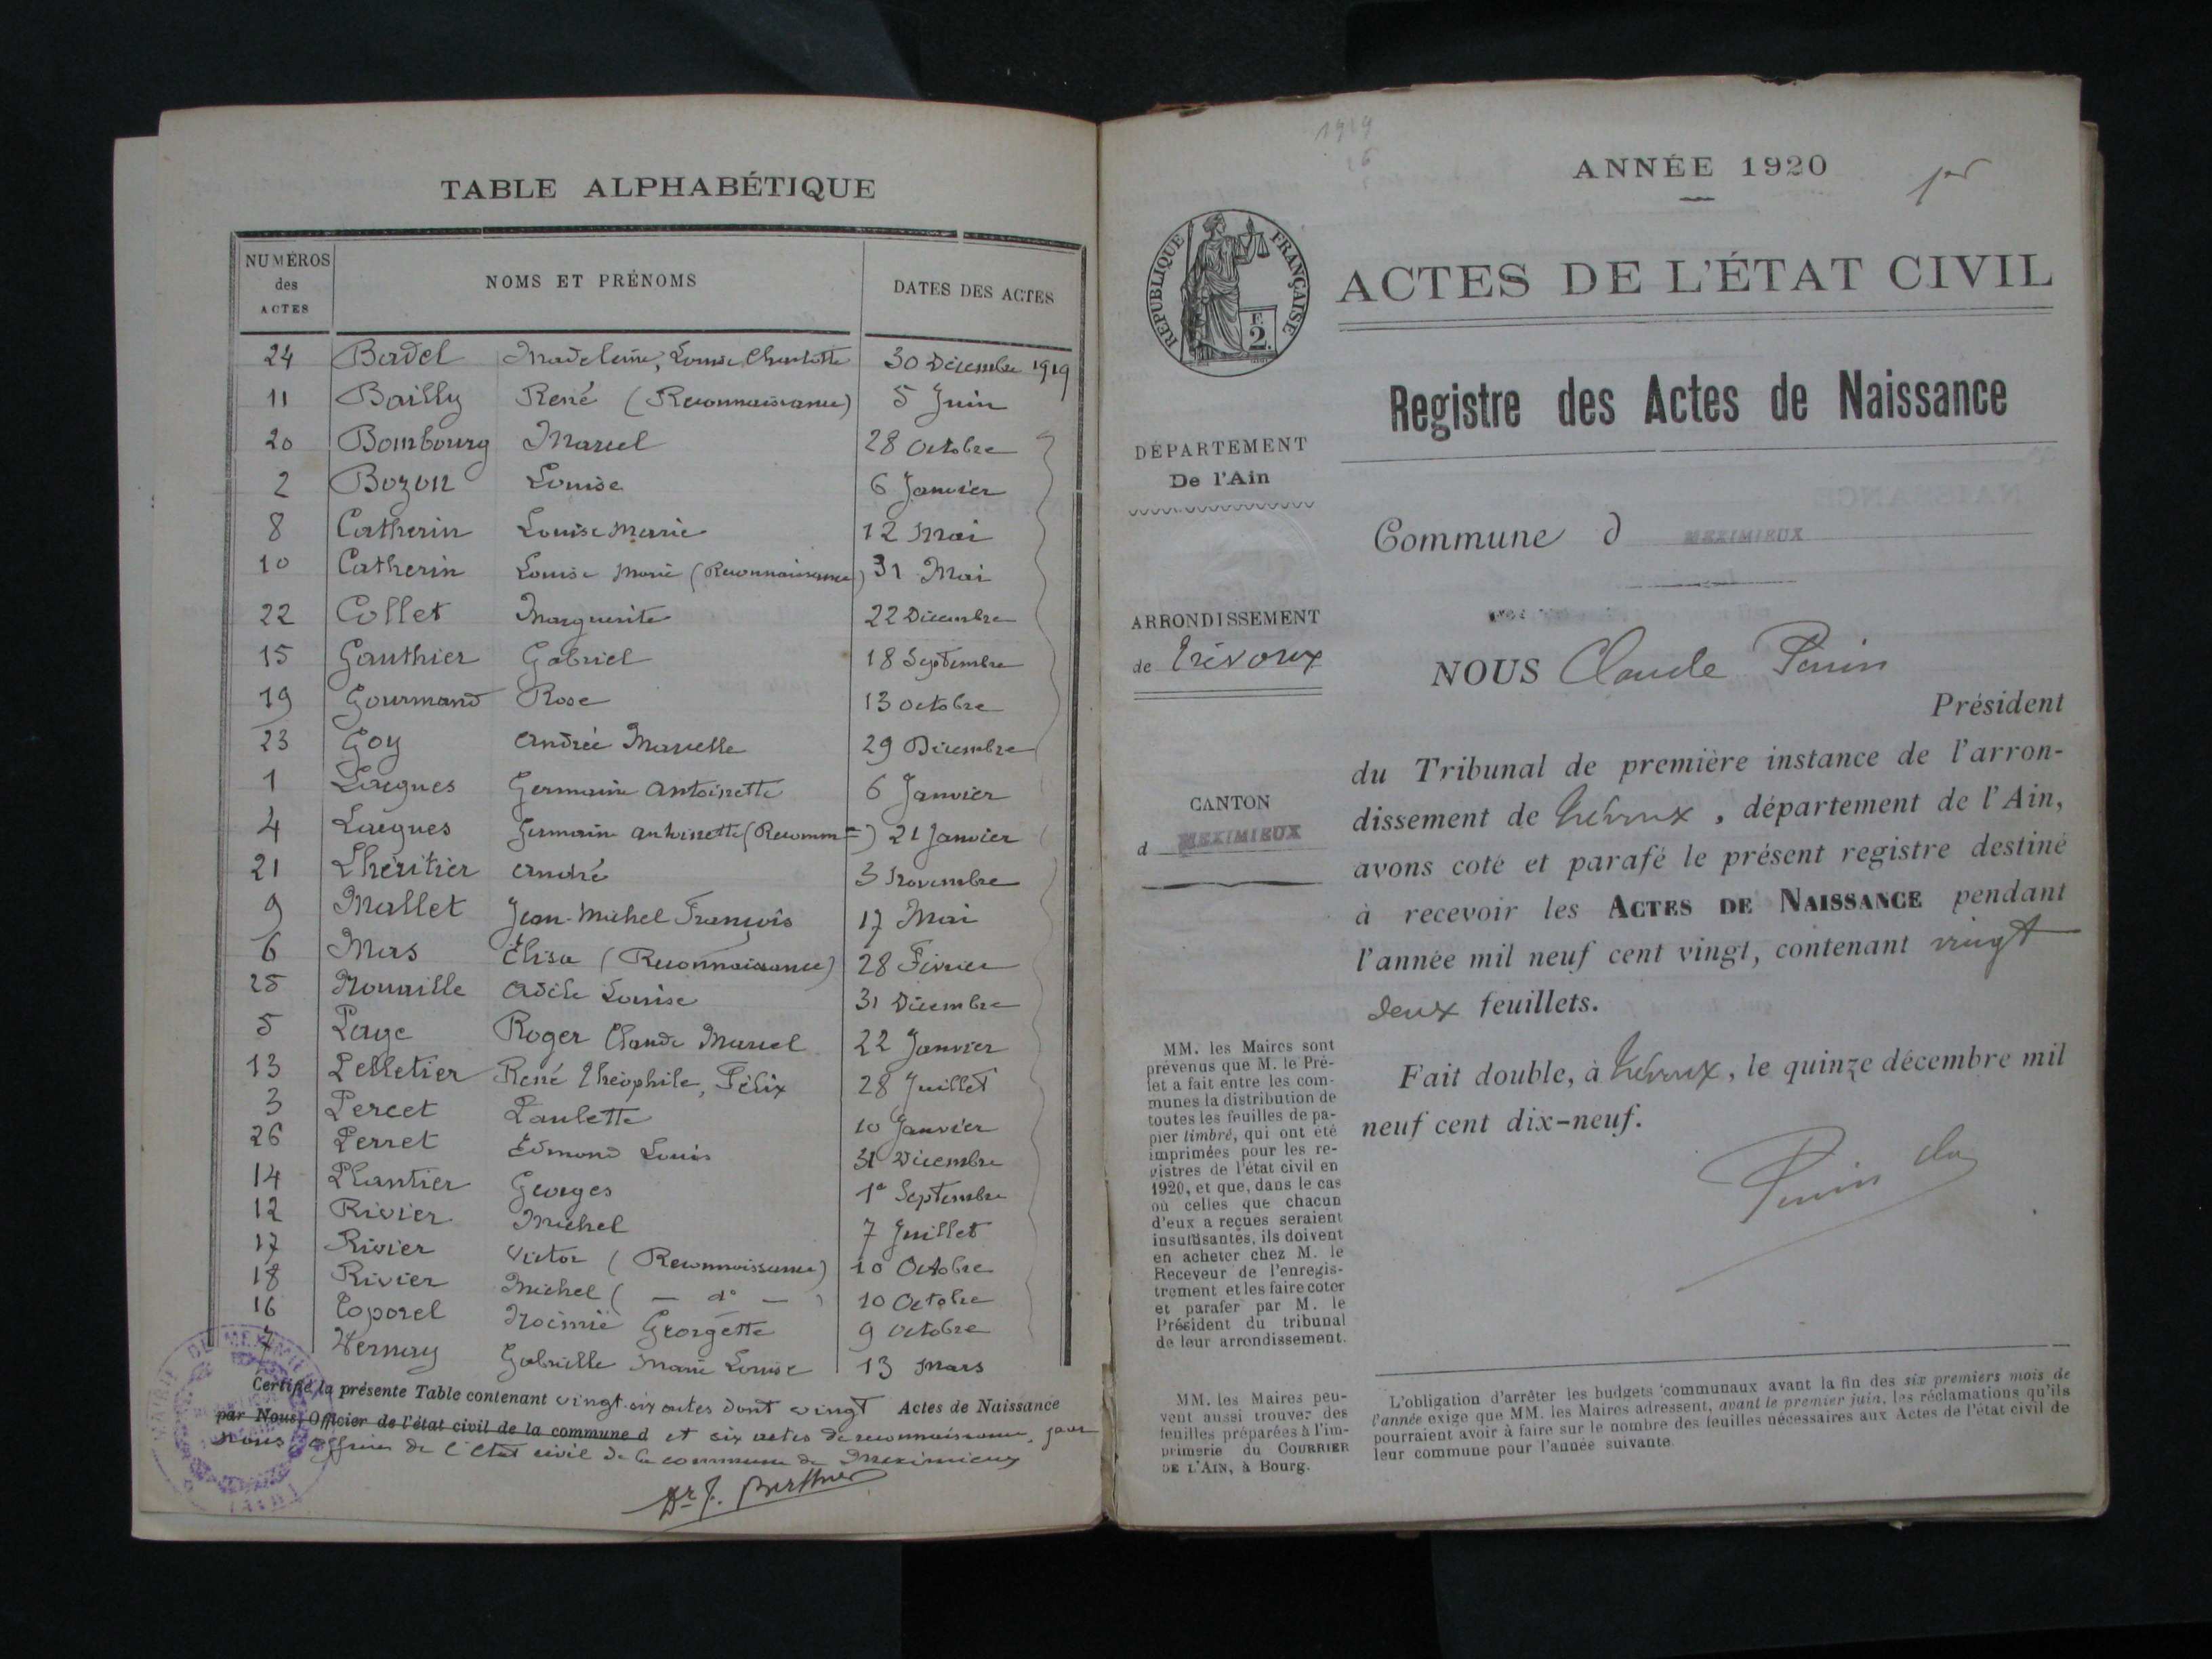 TABLE ALPHABÉTIQUE
NUMÉROS des ACTES
NOMS ET PRÉNOMS
DATES DES ACTES
24 Badel Madeleine, Louise Charlotte 30 Décembre 1919
11 Bailly René (Reconnaissance) 5 Juin
20 Bombourg Marcel 28 Octobre
2 Bozon Louise 6 Janvier
8 Catherin Louise Marie 12 Mai
10 Catherin Louise Marie (Reconnaissance) 31 Mai
22 Collet Marguerite 22 Décembre
15 Gauthier Gabriel 18 Septembre
19 Gourmand Rose 13 octobre
23 Goy Andrée Marcelle 29 Décembre
1 Laignes Germaine Antoinette 6 Janvier
4 Laignes Germaine Antoinette (Reconn=) 21 Janvier
21 Lhéritier André 3 Novembre
9 Mallet Jean-Michel François 17 Mai
6 Mas Élisa (Reconnaissance) 28 Février
25 Nouaille Adèle Louise 31 Décembre
5 Page Roger Claude Marcel 22 Janvier
13 Pelletier René Théophile, Félix 28 Juillet
3 Percet Paulette 10 Janvier
26 Perret Edmond Louis 31 Décembre
14 Plantier Georges 1e Septembre
12 Rivier Michel 7 Juillet
17 Rivier Victor (Reconnaissance) 10 Octobre
18 Rivier Michel ( — d° — ) 10 Octobre
16 Toporel Noémie Georgette 9 octobre
7 Vernay Gabrielle Marie Louise 13 Mars
Certifié la présente Table contenant vingt-six actes dont vingt Actes de Naissance
par Nous, Officier de l'état civil de la commune d et six actes de reconnaissance, par
Nous, officier de l'état civil de la commune de Meximieux
Dr J. Berthier
1919
26
ANNÉE 1920
1er
RÉPUBLIQUE FRANÇAISE
F.
2.
ACTES DE L'ÉTAT CIVIL
Registre des Actes de Naissance
DÉPARTEMENT
De l'Ain
Commune d MEXIMIEUX
ARRONDISSEMENT
de Trévoux
NOUS Claude Perrin
Président
du Tribunal de première instance de l'arron-
dissement de Trévoux, département de l'Ain,
avons coté et parafé le présent registre destiné
à recevoir les ACTES DE NAISSANCE pendant
l'année mil neuf cent vingt, contenant vingt
deux feuillets.
CANTON
d MEXIMIEUX
Fait double, à Trévoux, le quinze décembre mil
neuf cent dix-neuf.
Perrin
MM. les Maires sont
prévenus que M. le Pré-
fet a fait entre les com-
munes la distribution de
toutes les feuilles de pa-
pier timbré, qui ont été
imprimées pour les re-
gistres de l'état civil en
1920, et que, dans le cas
où celles que chacun
d'eux a reçues seraient
insuffisantes, ils doivent
en acheter chez M. le
Receveur de l'enregis-
trement et les faire coter
et parafer par M. le
Président du tribunal
de leur arrondissement.
MM. les Maires peu-
vent aussi trouver des
feuilles préparées à l'im-
primerie du COURRIER
DE L'AIN, à Bourg.
L'obligation d'arrêter les budgets communaux avant la fin des six premiers mois de
l'année exige que MM. les Maires adressent, avant le premier juin, les réclamations qu'ils
pourraient avoir à faire sur le nombre des feuilles nécessaires aux Actes de l'état civil de
leur commune pour l'année suivante.